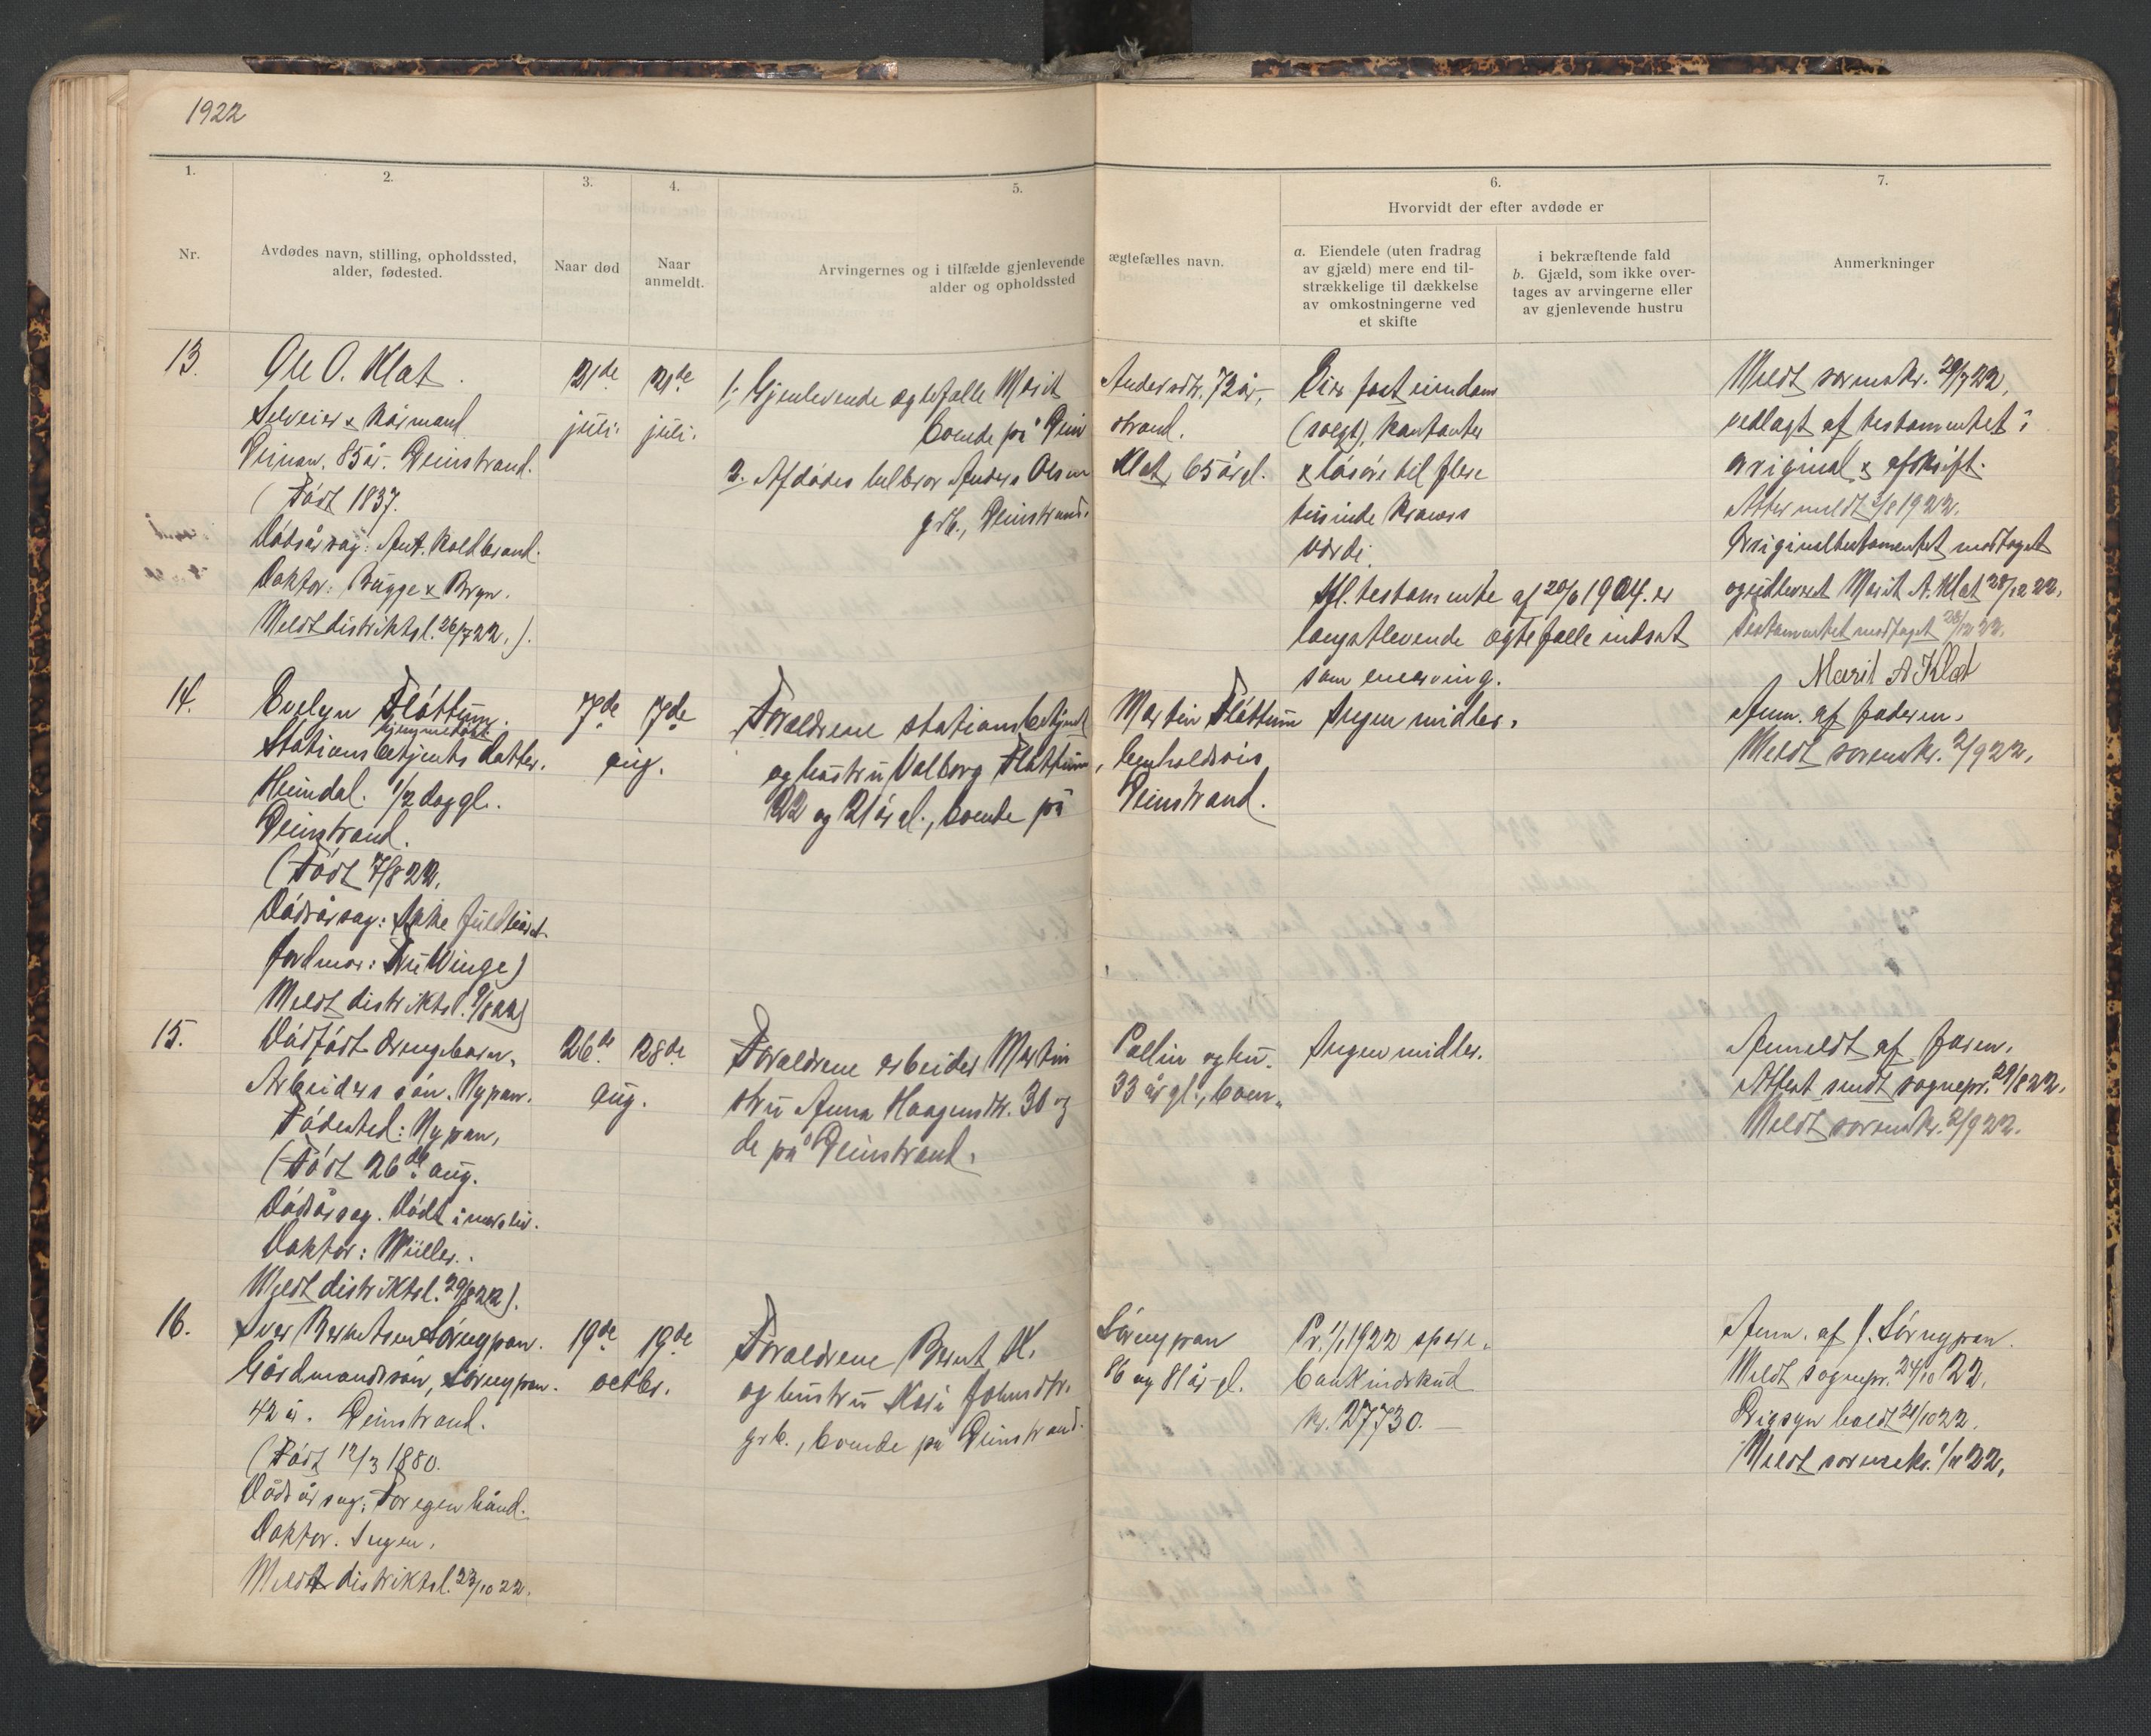 1922
1.
2.
3.
4.
5.
6.
7.
Nr.
Avdødes navn, stilling, opholdssted,
alder, fødested.
Naar død
Naar
anmeldt.
Arvingernes og i tilfælde gjenlevende ægtefælles navn.
alder og opholdssted
Hvorvidt der efter avdøde er
a. Eiendele (uten fradrag
av gjæld) mere end til-
strækkelige til dækkelse
av omkostningerne ved
et skifte
i bekræftende fald
b. Gjæld, som ikke over-
tages av arvingerne eller
av gjenlevende hustru
Anmerkninger
13.
Ole O. Klæt.
Selveier & kårmand
85 år. Leinstrand.
(Født 1837.
Dødsårsag: Ant. koldbrand.
Doktor: Bugge & Bryn.
Meldt distriktsl. 26/7 22.).
21de
juli.
21de
juli.
1. Gjenlevende ægtefælle Marit Andersdtr. 72 år,
boende på Leinstrand.
2. Afdødes helbror Anders Olsen Klæt, 65 år gl.
grb., Leinstrand.
Eier fast eiendom
(solgt), kontanter
& løsøre til flere
tusinde kroners
værdi.
Ifl. testamente af 20/6 1904 er
længstlevende ægtefælle indsat
som enearving.
Meldt sorenskr. 29/7 22,
vedlagt af testamentet i
original & afskrift.
Atter meldt 2/8 1922.
Originaltestamentet modtaget
og utleveret Marit A. Klæt 28/12 22.
Testamentet modtaget 28/12 22.
Marit A Klæt
14.
Evelyn Fløttum.
hjemmedøbt
Stationsbetjents datter.
Heimdal. 1/2 dag gl.
Leinstrand.
(Født 7/8 22.
Dødsårsag: Ikke fuldbåret
Jordmor: Fru Winge)
Meldt distriktsl. 9/8 22)
7de
aug.
17de
Forældrene stationsbetjent Martin Fløttum
og hustru Valborg Fløttum, henholdsvis
22 og 21 år gl., boende på Leinstrand.
Ingen midler.
Anm. af faderen.
Meldt sorenskr. 2/9 22.
15.
Dødfødt drengebarn.
Arbeiders søn. Nypan.
Fødested: Nypan,
(Født 26de aug.
Dødsårsag. Dødt i morsliv.
Doktor: Müller.
Meldt distriktsl. 29/8 22).
26de
aug.
28de
Forældrene arbeider Martin Pallin og hu-
stru Anna Haagensdtr. 30 og 33 år gl., boen-
de på Leinstrand.
Ingen midler.
Anmeldt af faren.
Attest sendt sognepr. 29/8 22.
Meldt sorenskr. 2/9 22.
16.
Iver Berntsen Sørnypan.
Gårdmandssøn, Sørnypan.
42 år. Leinstrand.
(Født 12/3 1880.
Dødsårsag: For egen hånd.
Doktor. Ingen.
Meldt distriktsl. 23/10 22.
19de
octbr.
19de
Forældrene Bernt K. Sørnypan
og hustru Kari Johnsdtr. 86 og 81 år gl.
grb., boende på Leinstrand.
Pr. 1/1 1922 spare-
bankindskud
kr. 27730.—
Anm. af J. Sørnypan.
Meldt sognepr. 24/10 22.
Ligsyn holdt 21/10 22.
Meldt sorenskr. 22.